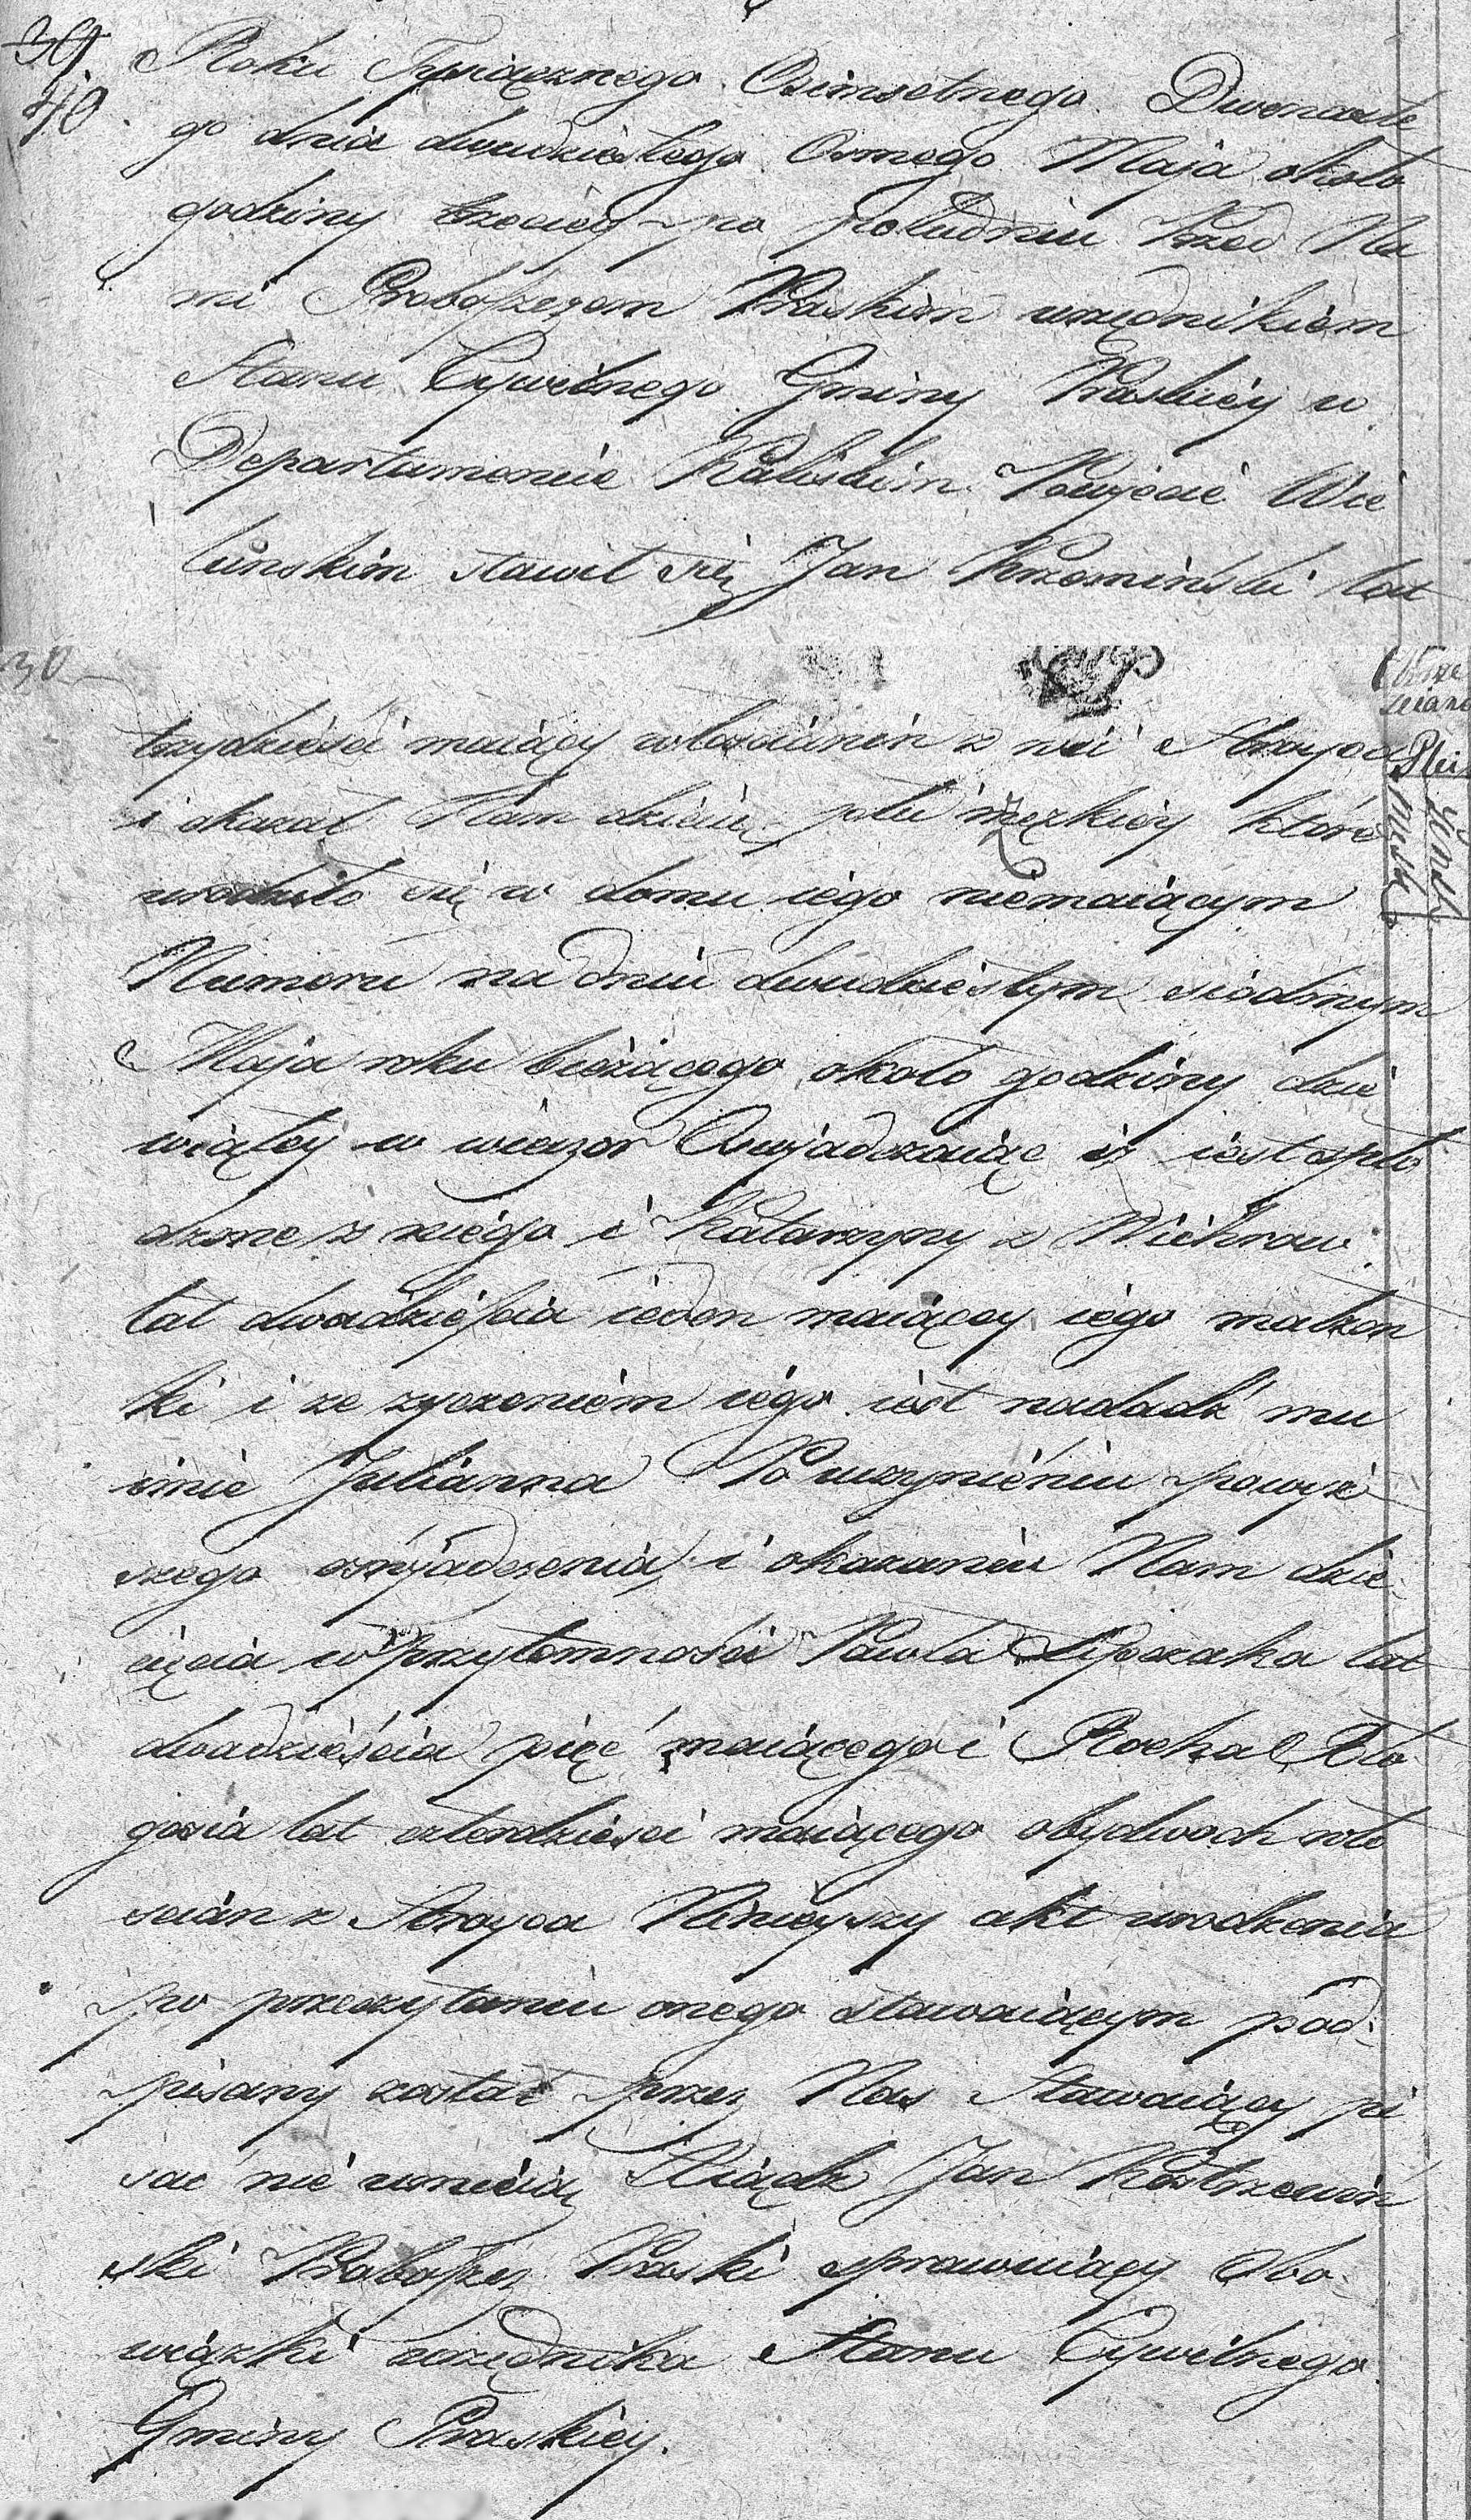 39
40
Roku Tysiącznego Osimsetnego Dwenaste
go dnia dwudziestego Osmego Maja około
godziny trzeciey po południu Przed Na
mi Proboszczem Praskim urzędnikiem
Stanu Cywilnego Gminy Praskiey w
Departamencie Kaliskim Powiecie Wie
luńskim stawił się Jan Krzemiński lat
30
trzydzieści maiący włościanin z wsi Stroyca
i okazał Nam dziecię płci które
urodziło się w domu iego niemaiącym
Numeru na dniu dwudziestym siódmym
Maja roku bieżącego około godziny dzie
wiątey w wieczor Oswjadczaiąc iż iest spło
dzone z niego i Katarzyny z Wichrow
lat dwadzieścia ieden maiącey iego małżon
ki i ze zyczeniem iego iest nadadź mu
imie Julianna Po uczynieniu powyż
szego oswjadczenia i okazaniu Nam dzie
cięcia w przytomności Pawła lat
dwadzieścia pięć maiącego i Rocha Bło
gosia lat czterdzieści maiącego obydwoch wło
scian z Stroyca Ninieyszy akt urodzenia
po przeczytaniu onego stawaiącym pod
pisany został przez Nas Stawaiący pi
sac nie umieią Xiądz Jan Kostrzewiń
ski Proboszcz Praski sprawuiący Obo
wiązki urzędnika Stanu Cywilnego
Gminy Praskiey.